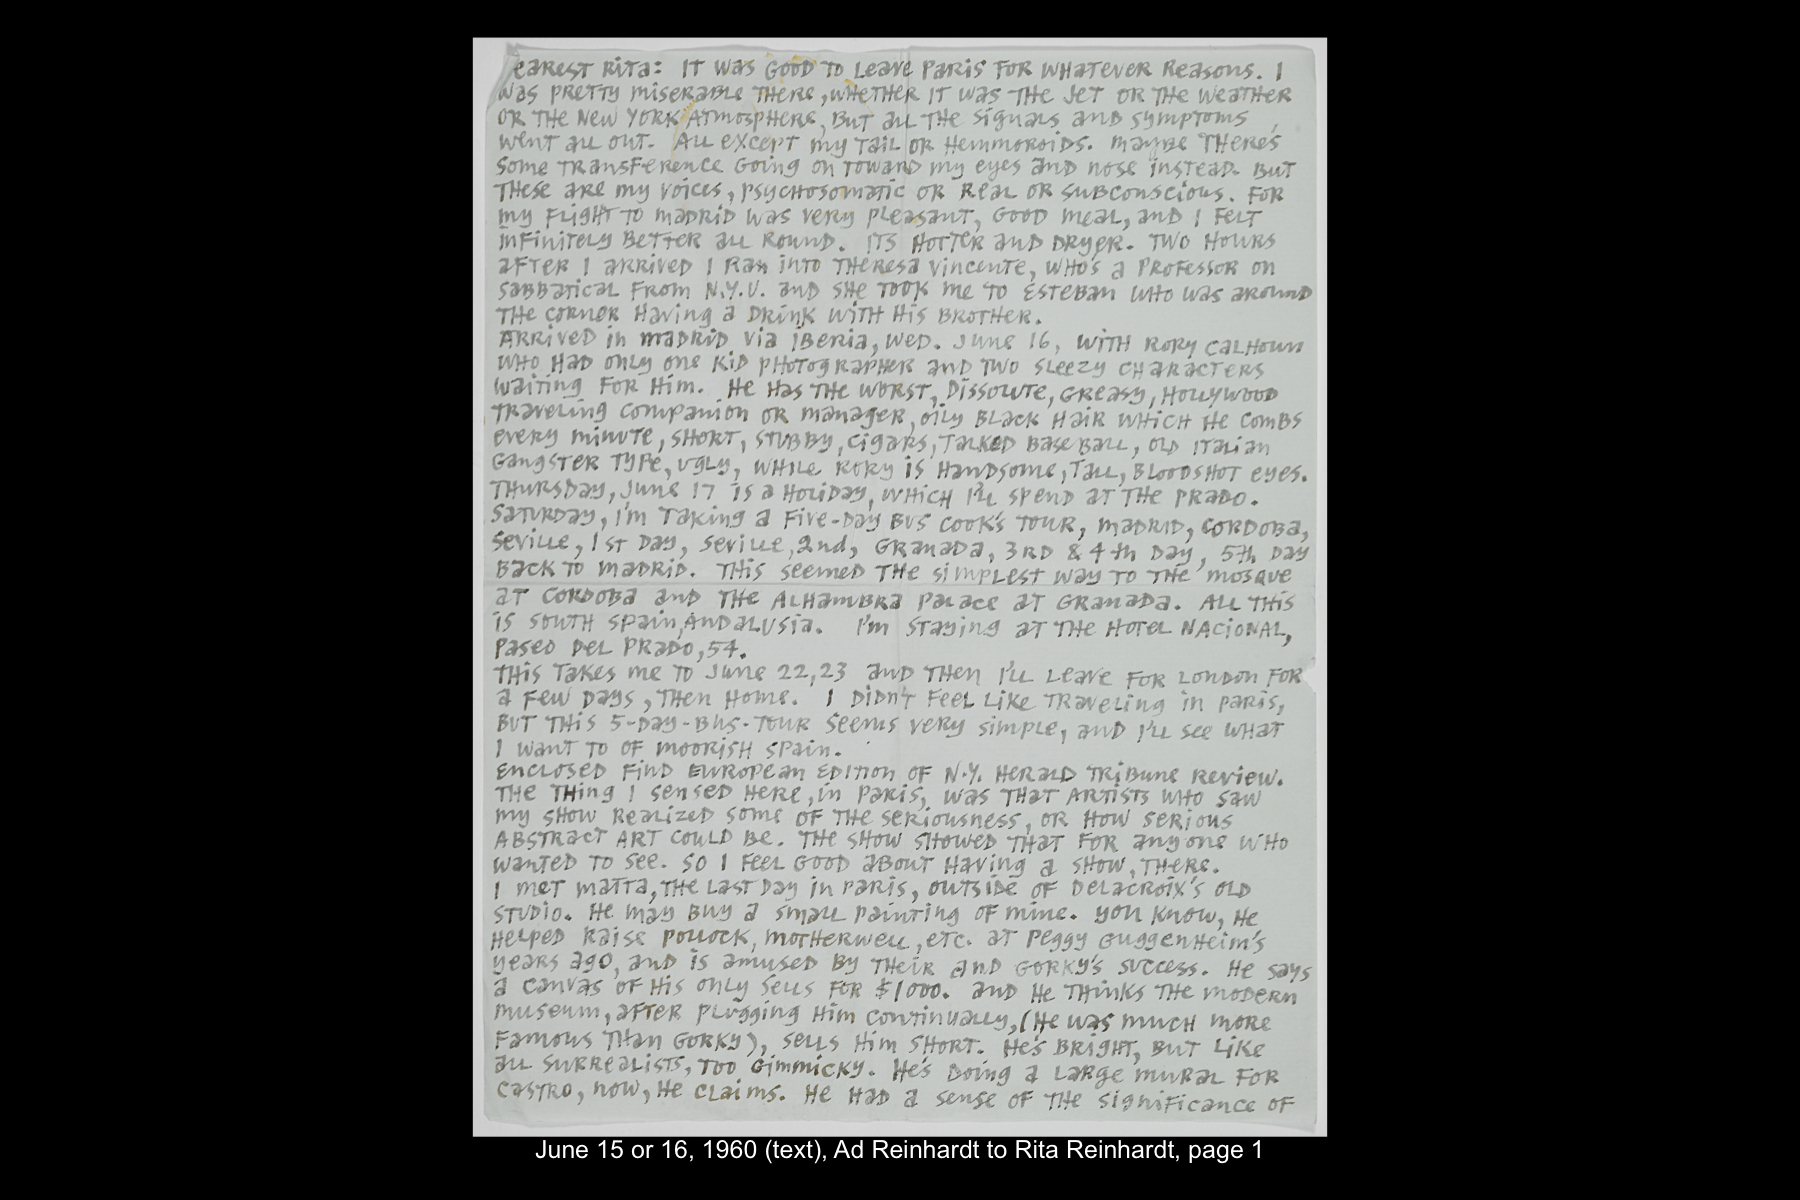 earest Rita: It was good to leave Paris for whatever reasons. I
was pretty miserable there, whether it was the jet or the weather
or the New York atmosphere, but all the signals and symptoms
went all out. All except my tail or hemmoroids. Maybe there's
some transference going on toward my eyes and nose instead. But
these are my voices, psychosomatic or real or subconscious. For
my flight to Madrid was very pleasant, good meal, and I felt
infinitely better all round. Its hotter and dryer. Two hours
after I arrived I ran into Theresa Vincente, who's a professor on
sabbatical from N.Y.U. and she took me to Esteban who was around
the corner having a drink with his brother.
Arrived in Madrid via Iberia, Wed. June 16, with Rory Calhoun
who had only one kid photographer and two sleezy characters
waiting for him. He has the worst, dissolute, greasy, Hollywood
traveling companion or manager, oily black hair which he combs
every minute, short, stubby, cigars, talked baseball, old Italian
gangster type, ugly, while Rory is handsome, tall, bloodshot eyes.
Thursday, June 17 is a holiday, which I'll spend at the Prado.
Saturday, I'm taking a five-day bus Cook's tour, Madrid, Cordoba,
Seville, 1st day, Seville, 2nd, Granada, 3rd & 4th day, 5th day
back to Madrid. This seemed the simplest way to the mosque
at Cordoba and the Alhambra Palace at Granada. All this
is South Spain, Andalusia. I'm staying at the Hotel Nacional,
Paseo del Prado, 54.
This takes me to June 22,23 and then I'll leave for London for
a few days, then home. I didn't feel like traveling in Paris,
but this 5-day-bus-tour seems very simple, and I'll see what
I want to of Moorish Spain.
Enclosed find European edition of N.Y. Herald Tribune review.
The thing I sensed here, in Paris, was that artists who saw
my show realized some of the seriousness, or how serious
abstract art could be. The show showed that for anyone who
wanted to see. So I feel good about having a show, there.
I met Matta, the last day in Paris, outside of Delacroix's old
studio. He may buy a small painting of mine. You know, he
helped raise Pollock, Motherwell, etc. at Peggy Guggenheim's
years ago, and is amused by their and Gorky's success. He says
a canvas of his only sells for $1000. And he thinks the Modern
Museum, after plugging him continually, (he was much more
famous than Gorky), sells him short. He's bright, but like
all surrealists, too gimmicky. He's doing a large mural for
Castro, now, he claims. He had a sense of the significance of
June 15 or 16, 1960 (text), Ad Reinhardt to Rita Reinhardt, page 1